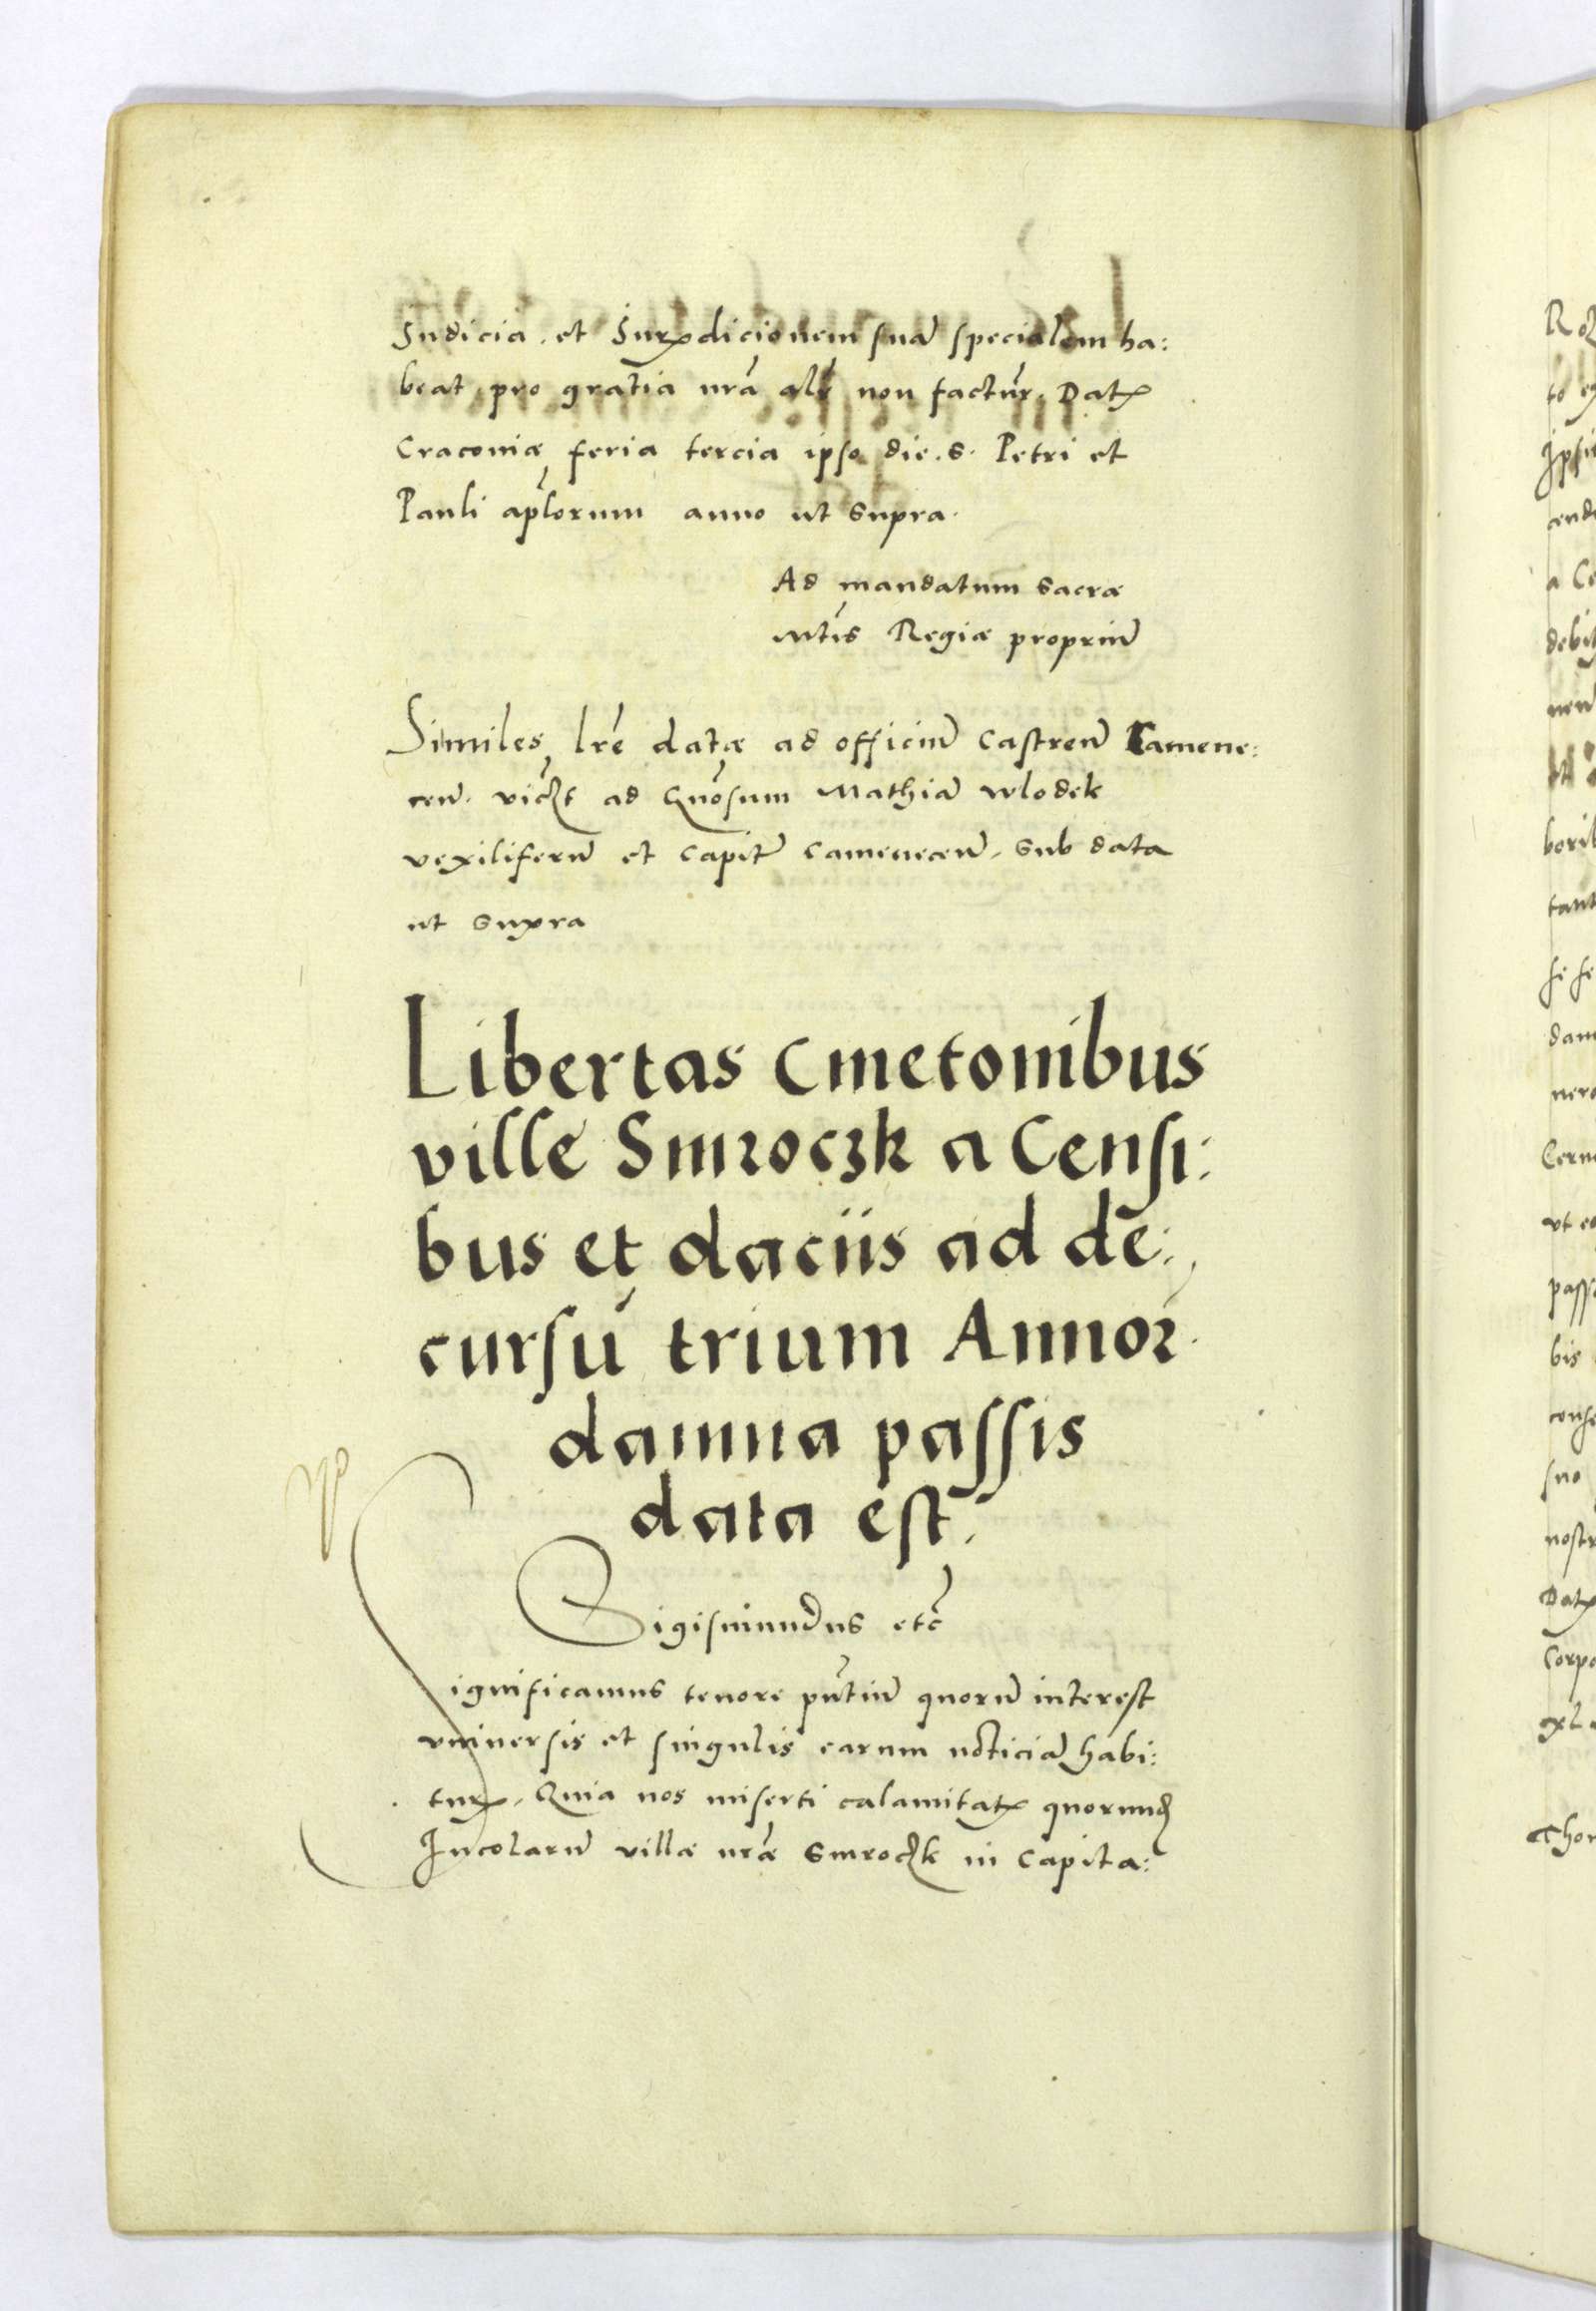 Judicia et Jurisdicionem suā specialem ha:
beat, pro gratia nrā alr̄ non factūr. Datꝭ
Craconiæ feria tercia ipso die. S. Petri et
Pauli apl̄orum anno ut supra.
Ad mandatum Sacræ
Mtīs Regiæ propriū
Similes lrē datæ ad officiū Castreń Camene:
ceń. vicꝫt ad Gn̄osum Mathiā Wlodek
vexiliferū et Capiť Cameneceń. Sub data
ut supra
Libertas Cmetonibus
ville Smroczk a Censi:
bus et daciis ad de:
cursū trium Annoꝝ
damna passis
data est.
Sigismundus etc̄
Significamus tenore pn̄tiū quorū interest
universis et singulis earum noticiā habi:
turꝭ. Quia nos miserti calamitatꝭ quorundꝫ
Incolarū villæ nræ Smroczk in Capita: